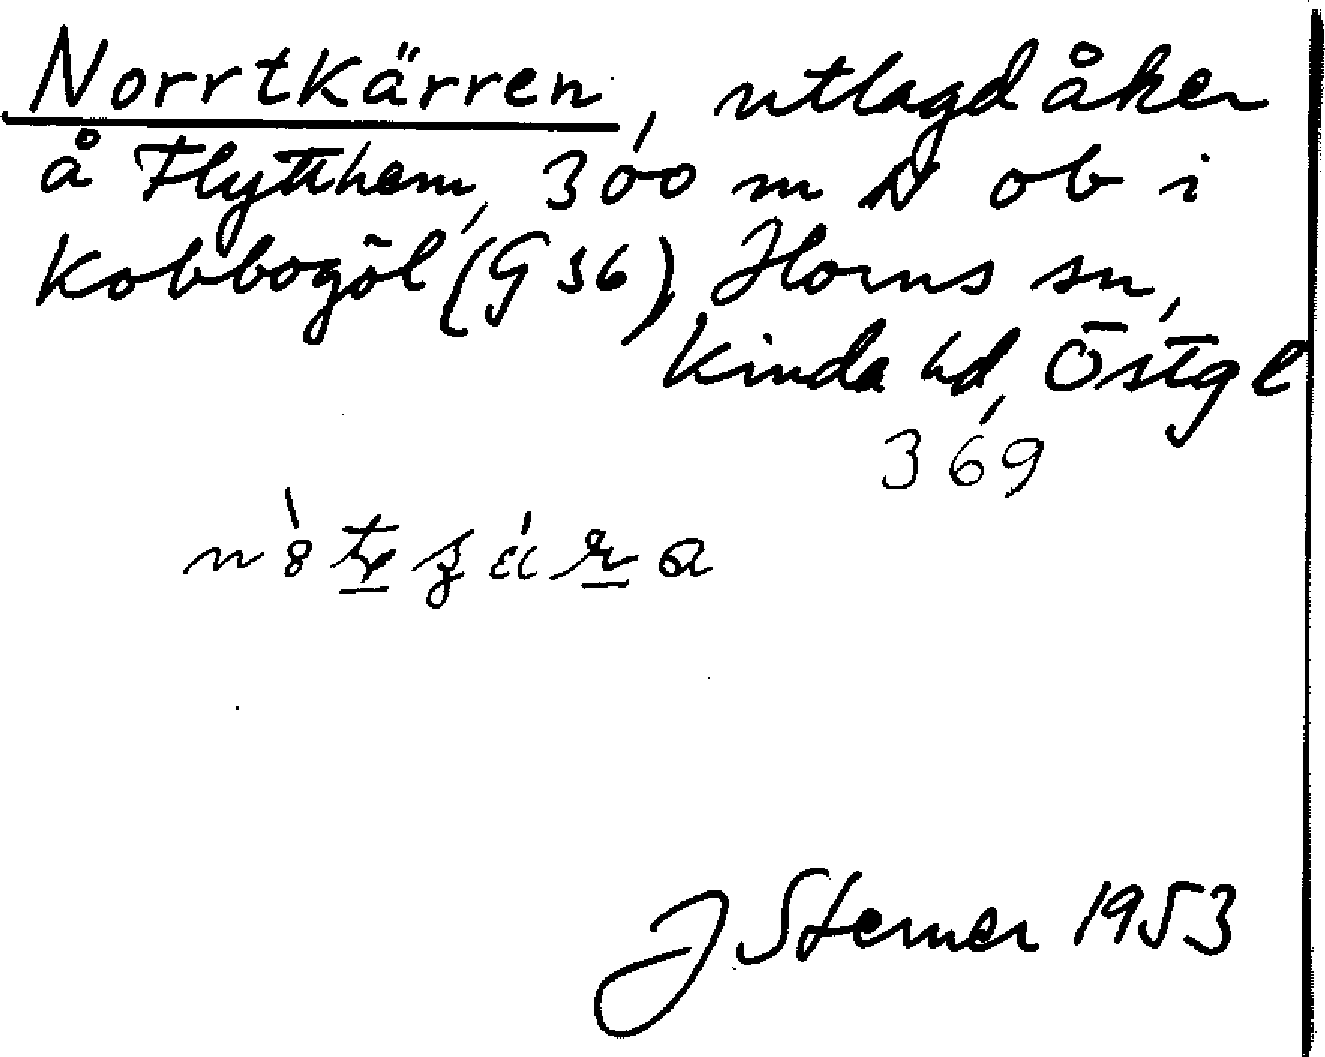 Norrtkärren, utlagd åker
å Flytthem, 300 m N ob i
Kobbogöl (G 36), Horns sn,
Kinda hd, Östgl
369
J Sterner 1953